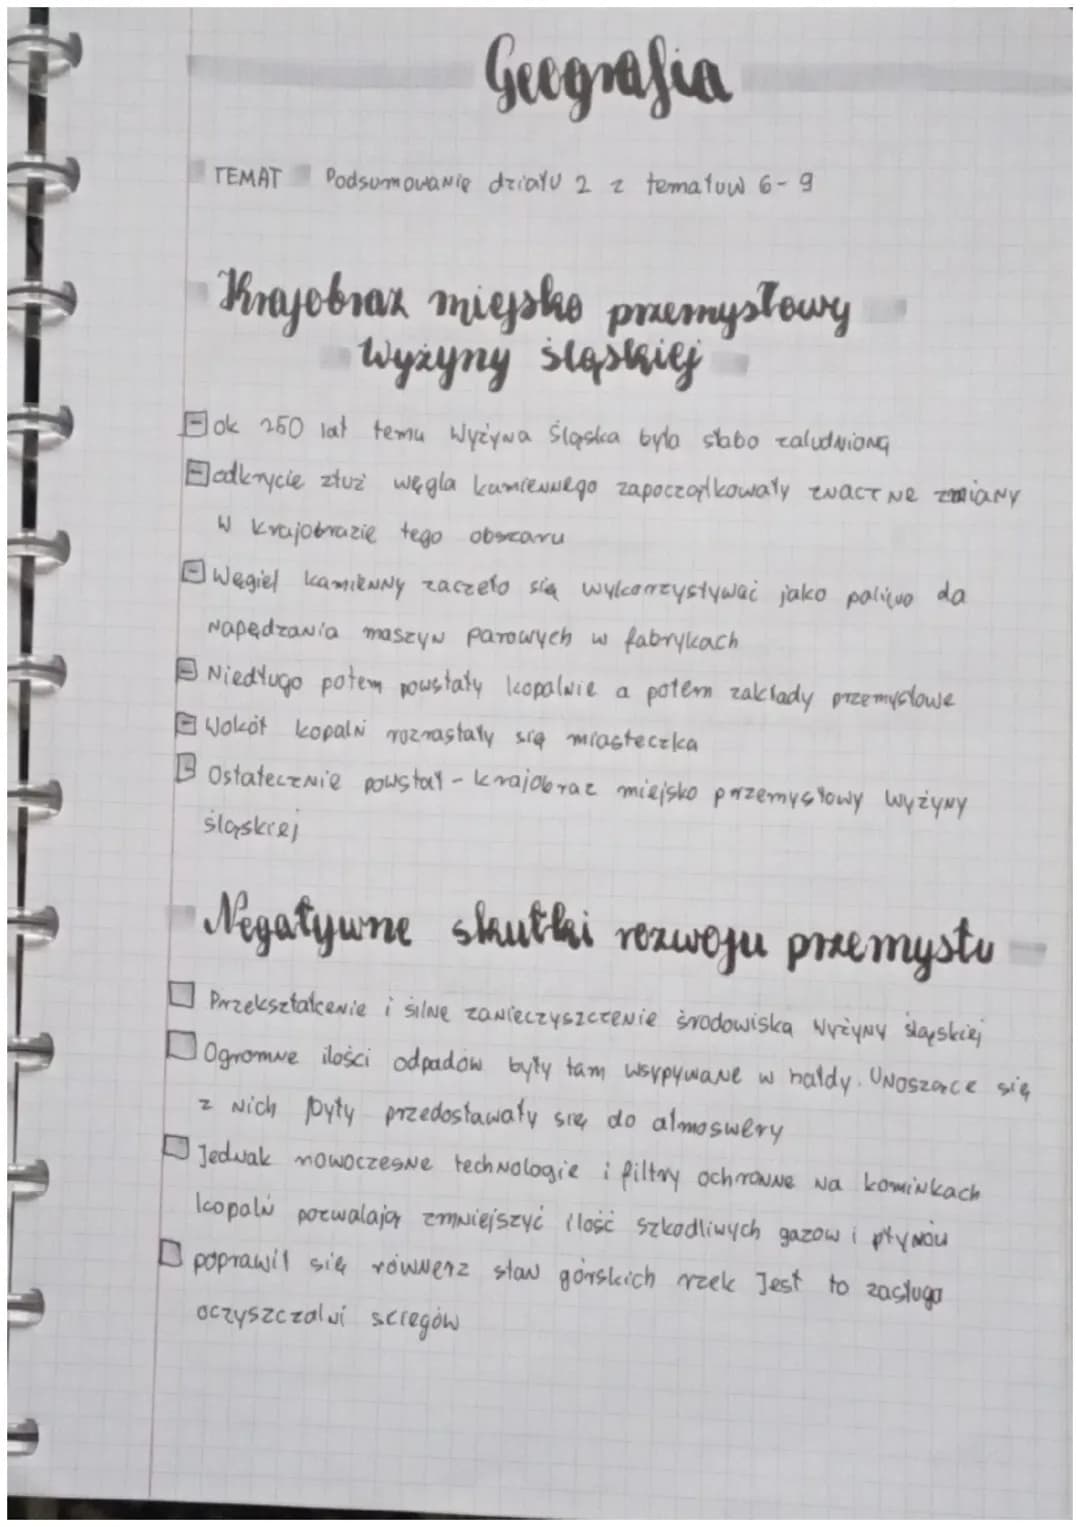 Geografia
TEMAT Podsumowanie działu 2 z tematuw 6-9
Krajobraz miejsko przemysłowy
Wyżyny śląskiej
ok 250 lat temu Wyżyna Śląska była słabo zaludniona
odkrycie złuż węgla kamiennego zapoczątkowały znaczne zmiany
w krajobrazie tego obszaru
Węgiel kamienny zaczeto się wykorzystywać jako paliwo do
napędzania maszyn parowych w fabrykach
Niedługo potem powstały kopalnie a potem zakłady przemysłowe
Wokół kopalni rozrastały się miasteczka
Ostatecznie powstał - krajobraz miejsko przemysłowy wyżyny
śląskiej
Negatywne skutki rozwoju przemysłu
Przekształcenie i silne zanieczyszczenie środowiska wyżyny śląskiej
Ogromne ilości odpadów były tam wsypywane w hałdy. Unoszące się
z nich pyły przedostawały się do atmoswery
Jednak nowoczesne technologie i filtry ochronne na kominkach
kopalń pozwalają zmniejszyć ilość szkodliwych gazow i płynów
poprawił się równerz stan górskich rzek Jest to zasługa
oczyszczalni sciegów